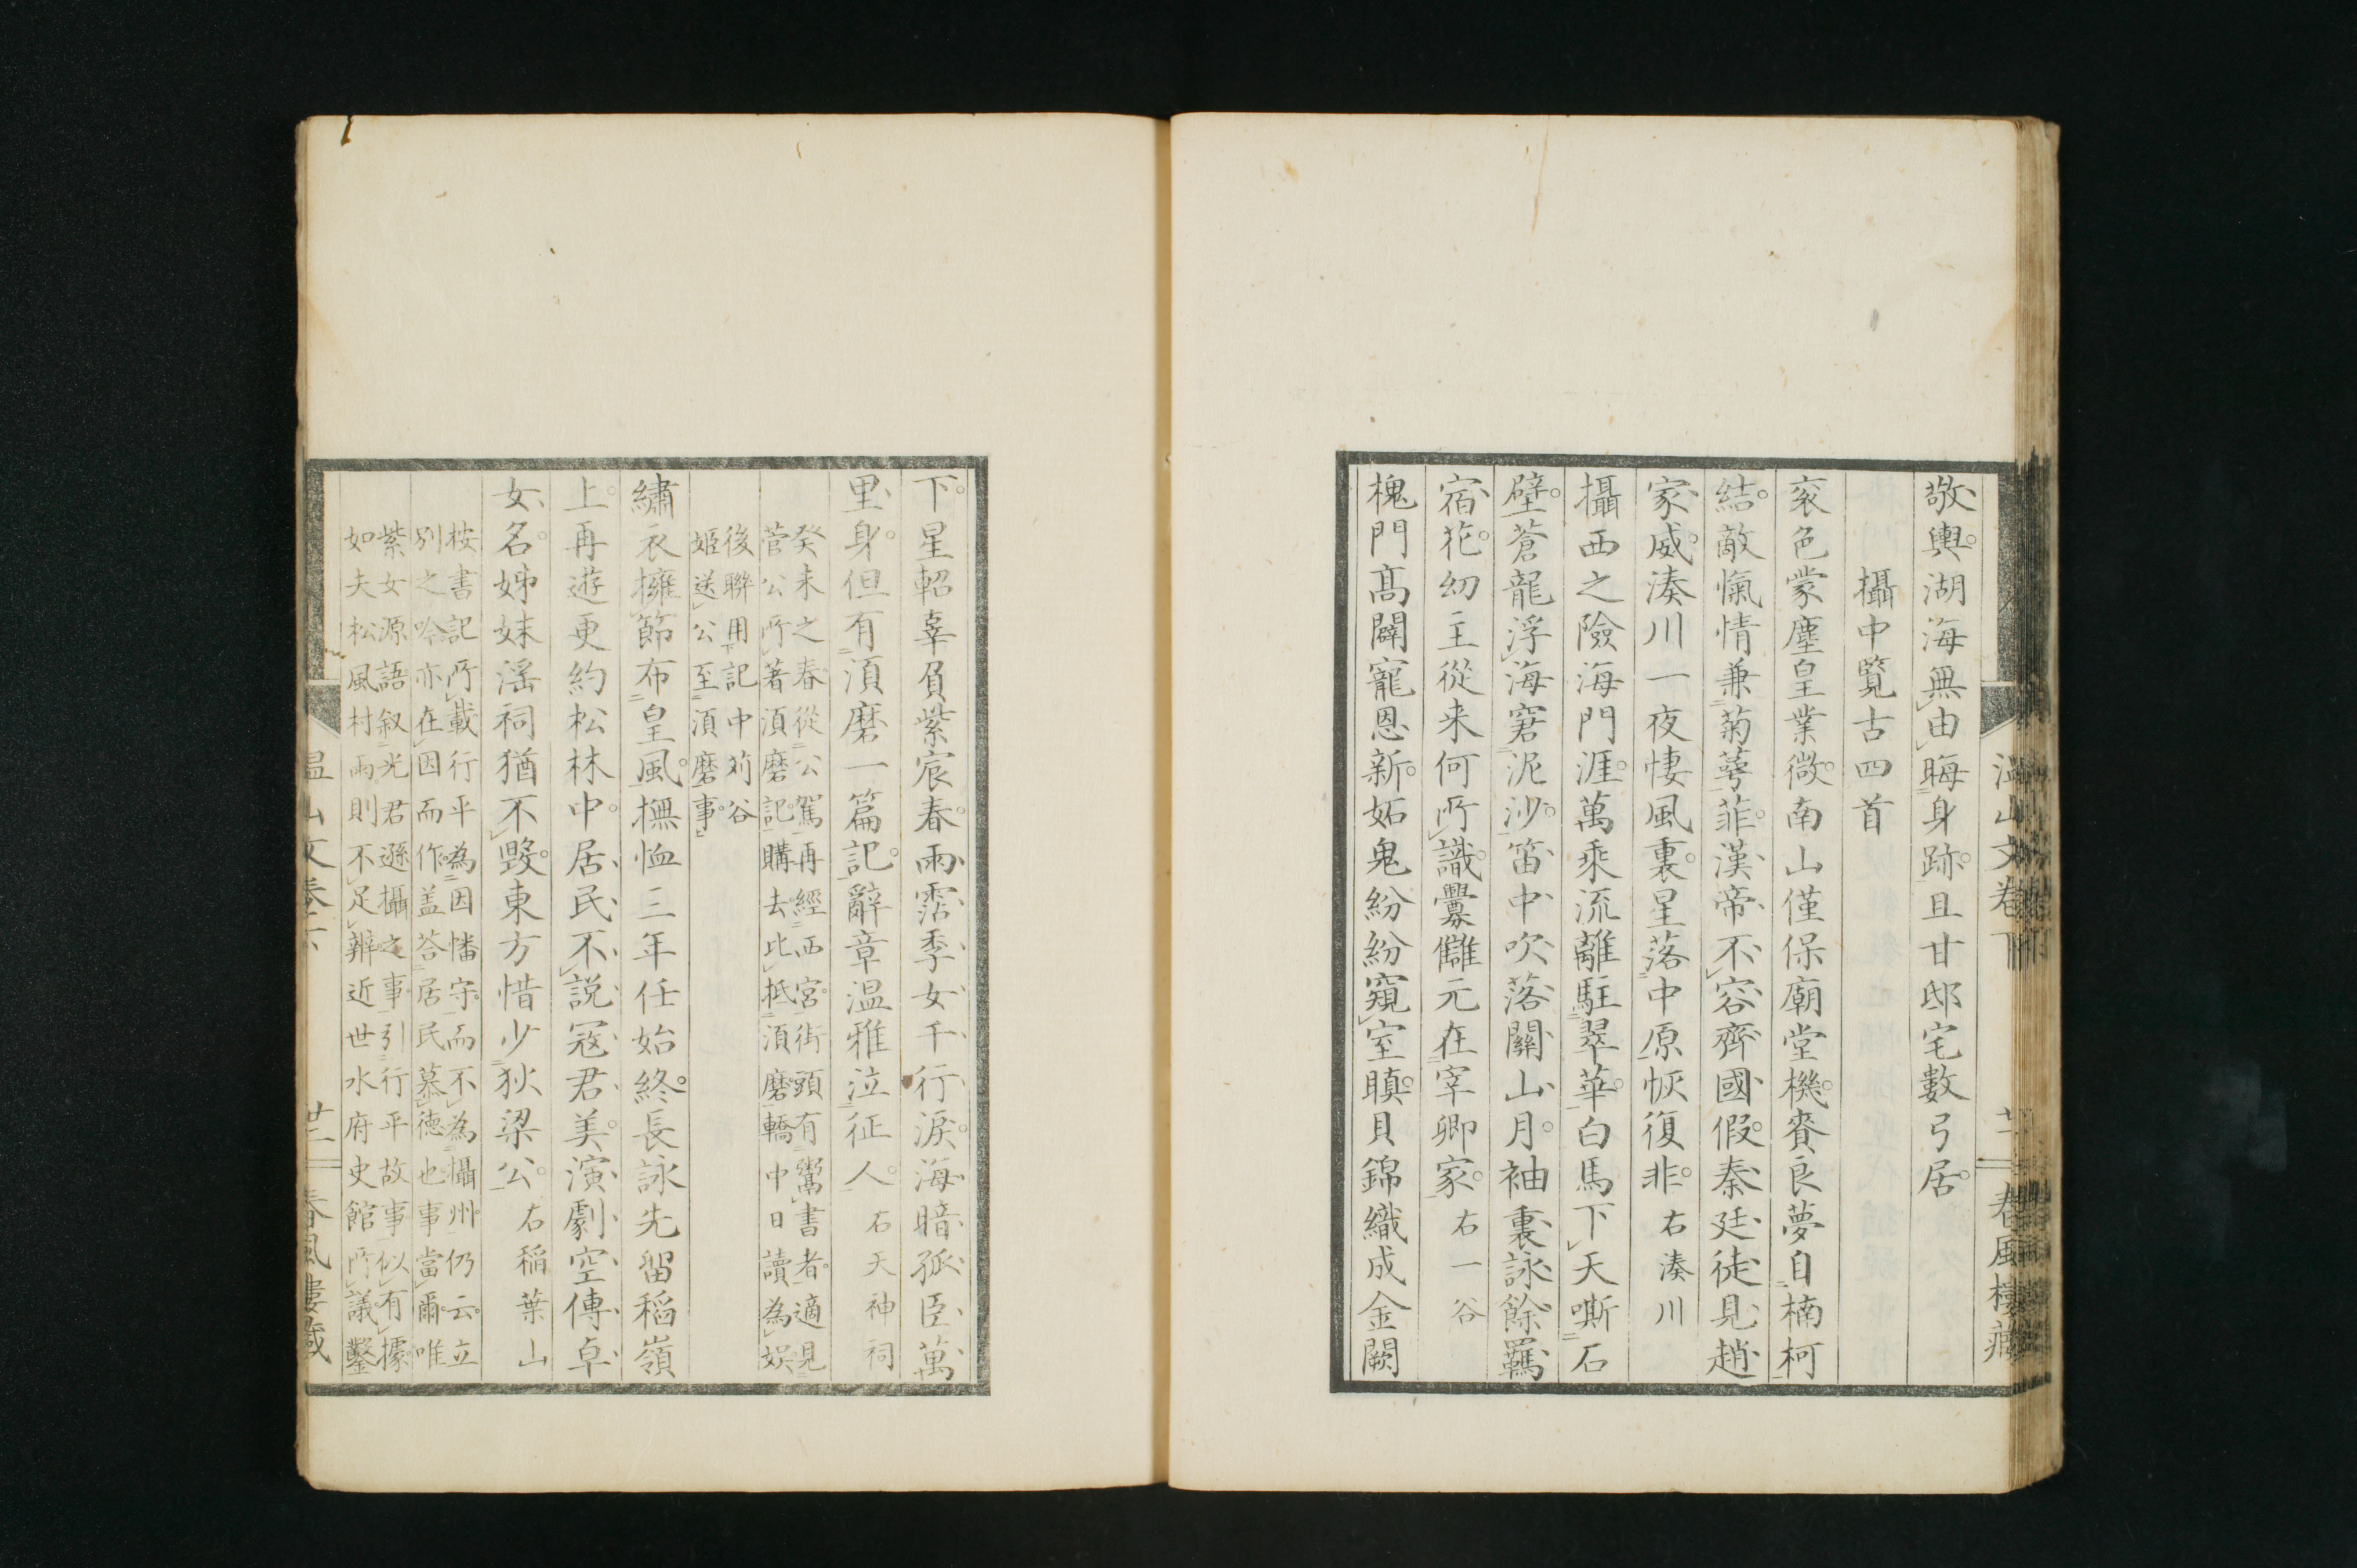 敬輿湖海無由晦身跡且甘邸宅數弓居
攝中覽古四首
袞色蒙塵皇業微南山僅保廟堂機賚良夢自楠柯
結敵愾情兼菊萼菲漢帝不容齊國假秦廷徒見趙
家威湊川一夜悽風裏星落中原恢復非右湊川
攝西之險海門涯萬乘流離駐翠華白馬下天嘶石
壁蒼龍浮海窘泥沙笛中吹落關山月袖裏詠餘羈
宿花幼主從来何所識釁讎元在宰卿家右一谷
槐門髙闢寵恩新妬鬼紛紛窺室瞋貝錦織成金闕
下星軺辜負紫宸春雨霑季女千行淚海暗孤臣萬
里身但有須磨一篇記辭章温雅泣征人右天神祠
癸未之春從公駕再經西宮街頭有鬻書者適見
菅公所著須磨記購去比抵須磨轎中日讀為娯
後聯用記中苅谷
姬送公至須磨事
繡衣擁節布皇風撫恤三年任始終長詠先留稻嶺
上再遊更約松林中居民不説寇君美演劇空傳卓
女名姊妹淫祠猶不毀東方惜少狄梁公右稲葉山
桉書記所載行平為因幡守而不為攝州仍云立
別之吟亦在因而作盖荅居民慕徳也事當爾唯
紫女源語叙光君遜攝之事引行平故事似有據
如夫松風村雨則不足辨近世水府史館所議鑿
温山文巻下
廿一
春風樓藏
廿二
春風樓藏